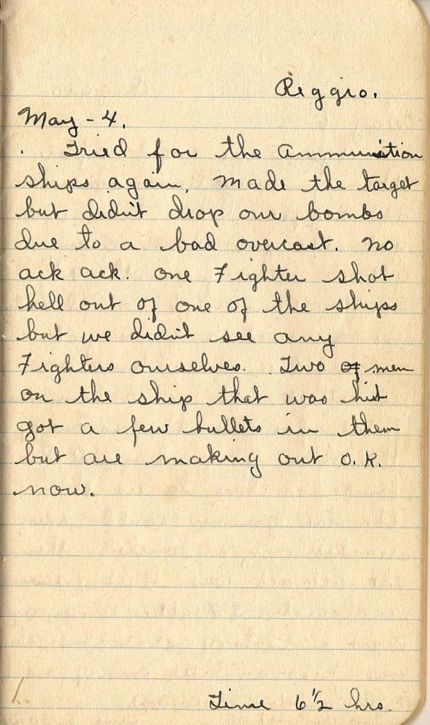 Reggio.
May - 4.
. Tried for the ammunition
ships again, made the target
but didn't drop our bombs
due to a bad overcast. no
ack ack. one Fighter shot
hell out of one of the ships
but we didn't see any
Fighters ourselves. Two of men
on the ship that was hit
got a few bullets in them
but are making out O.K.
now.
Time 6 1/2 hrs.